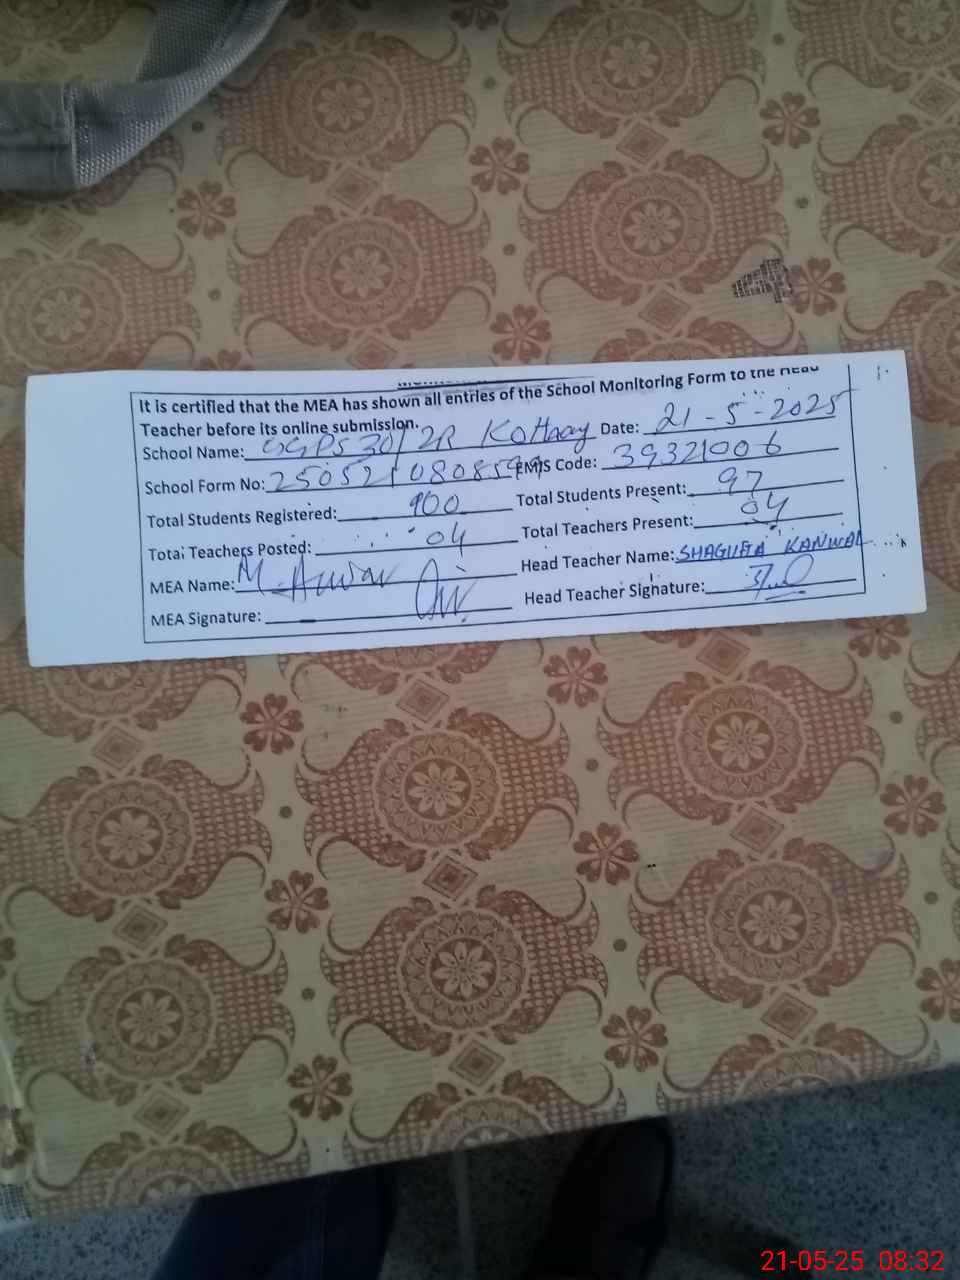 It is certified that the MEA has shown all entries of the School Monitoring Form to the Head
Teacher before its online submission.
School Name: GGPS 30/2R Date: 21-5-2025
School Form No: EMIS Code: 39321006
Total Students Registered: 100 Total Students Present: 97
Total Teachers Posted: 04 Total Teachers Present: 04
MEA Name: M. Anwar Head Teacher Name: SHAGUFTA KANWAL
MEA Signature: Head Teacher Signature:
21-05-25 08:32